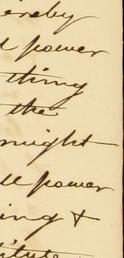 ereby
power
thing
the
might
power
ing &